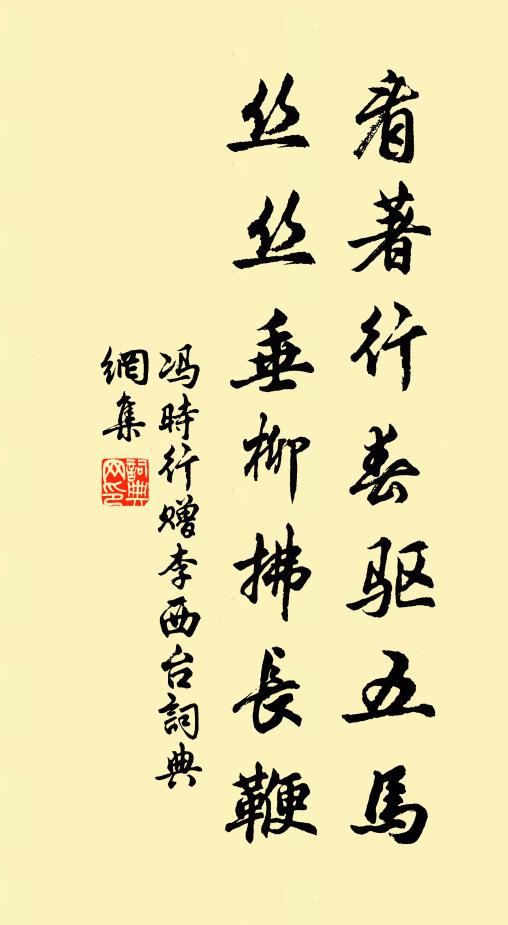 看著行春驱五馬
丝丝垂柳拂長鞭
冯時行赠李西台詞典
網集
詞典
网印